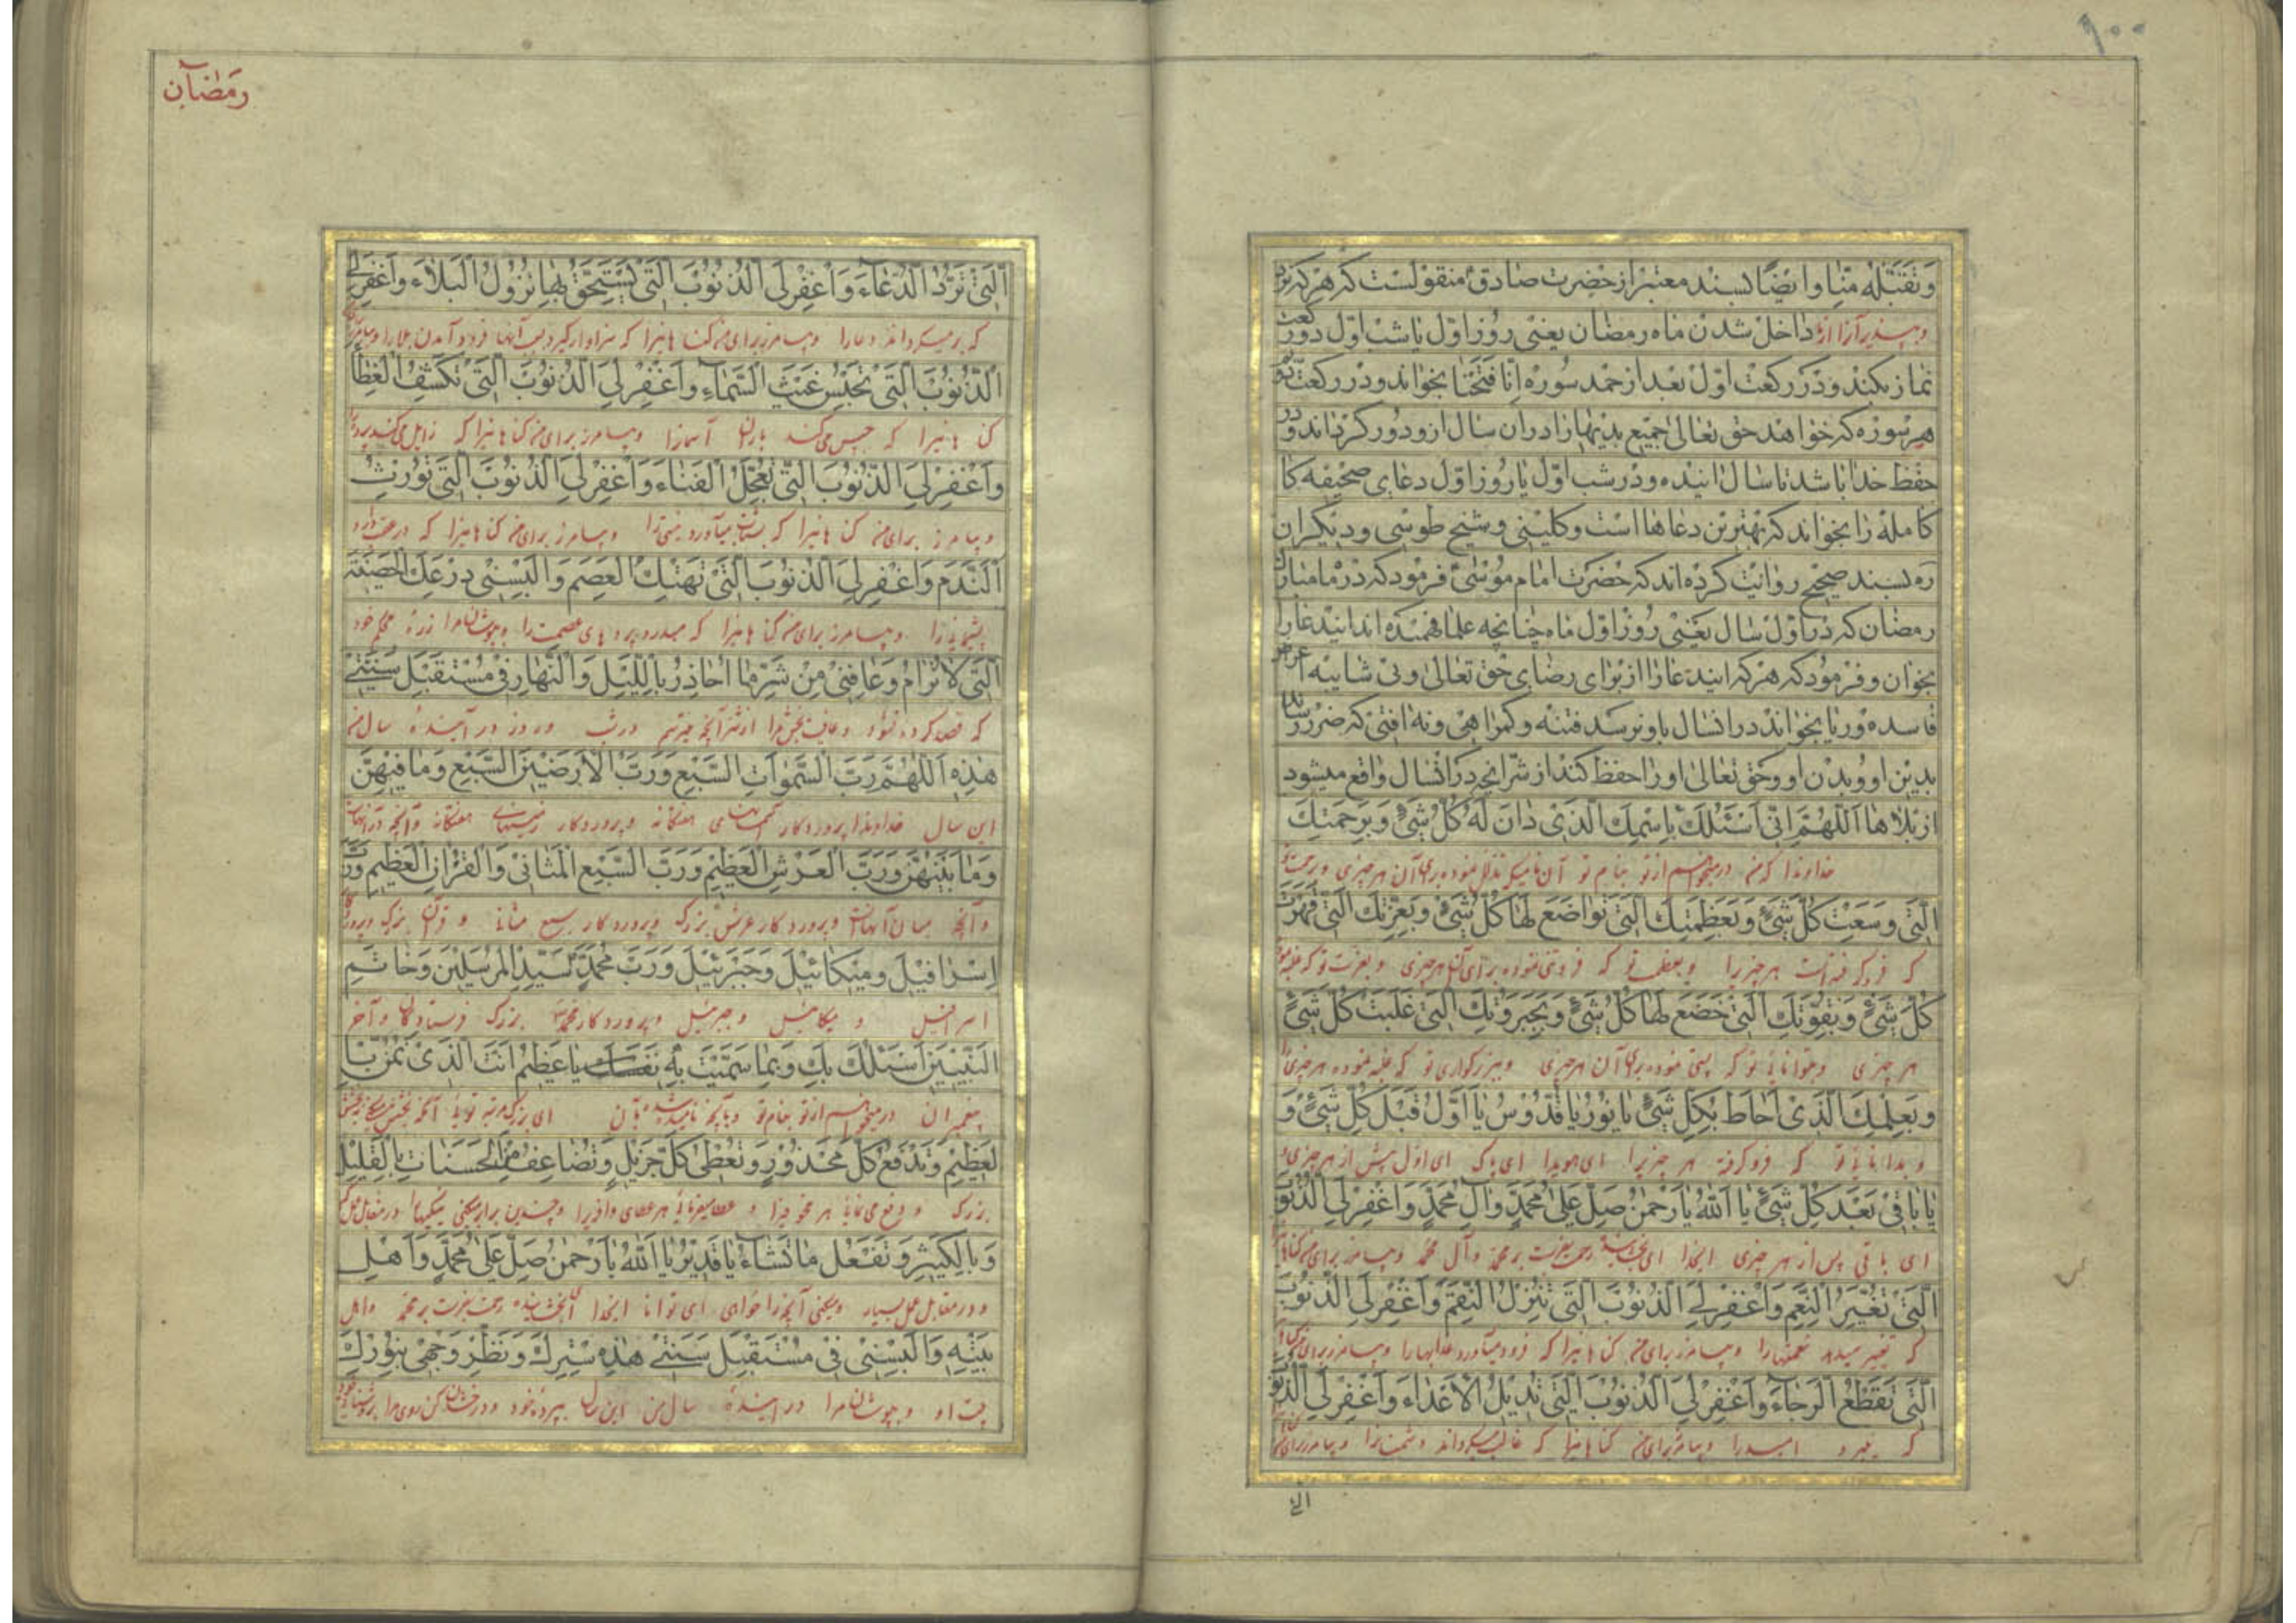 ۱۰۰
وَتَقَبَّلْهُ مِنّا وایضًا بسند معتبر از حضرت صادق منقولست که هر که نزد
وبپذیر آنرا از ما داخل شدن ماه رمضان یعنی روز اول یا شب اول دو رکعت
نماز بکند و در رکعت اول بعد از حمد سوره انا فتحنا بخواند و در رکعت دویم
هر سوره که خواهد حق تعالی جمیع بدیها را در آن سال ازو دور گرداند و در
حفظ خدا باشد تا سال آینده و در شب اول یا روز اول دعای صحیفه کا
کامله را بخواند که بهترین دعاها است و کلینی و شیخ طوسی و دیگران
ره بسند صحیح روایت کرده اند که حضرت امام موسی فرمود که در ماه مبارک
رمضان که در اول سال یعنی روز اول ماه چنانچه علما فهمیده اند ایندعا را
بخوان و فرمود که هر که ایندعا را از برای رضای حق تعالی و بی شایبه اغراض
فاسده و ریا بخواند در انسال باو نرسد فتنه و گمراهی و نه آفتی که ضرر رساند
بدین او و بدن او و حق تعالی او را حفظ کند از شر آنچه در انسال واقع میشود
از بلاها اَللّهُمَّ اِنّی اَسْئَلُکَ بِاسْمِکَ الَّذی دانَ لَهُ کُلُّ شَیْءٍ وَبِرَحْمَتِکَ
خداوندا که من درمیخواهم از تو بنام تو آن نامیکه تذلل نموده برای آن هر چیزی و برحمت تو
الَّتی وَسِعَتْ کُلَّ شَیْءٍ وَبِعَظَمَتِکَ الَّتی تَواضَعَ لَها کُلُّ شَیْءٍ وَبِعِزَّتِکَ الَّتی قَهَرَتْ
که فرو گرفته است هر چیز را و بعظمت تو که فروتنی نموده برای آن هر چیزی و بعزت تو که غلبه نموده
کُلَّ شَیْءٍ وَبِقُوَّتِکَ الَّتی خَضَعَ لَها کُلُّ شَیْءٍ وَبِجَبَرُوتِکَ الَّتی غَلَبَتْ کُلَّ شَیْءٍ
هر چیزی و بتوانائی تو که پستی نموده برای آن هر چیزی و ببزرگواری تو که غلبه نموده هر چیزی را
وَبِعِلْمِکَ الَّذی اَحاطَ بِکُلِّ شَیْءٍ یا نُورُ یا قُدُّوسُ یا اَوَّلُ قَبْلَ کُلِّ شَیْءٍ وَ
و بدانائی تو که فرو گرفته هر چیز را ای هویدا ای پاک ای اول پیش از هر چیزی و
یا باقی بَعْدَ کُلِّ شَیْءٍ یا اَللّهُ یا رَحْمنُ صَلِّ عَلی مُحَمَّدٍ وَآلِ مُحَمَّدٍ وَاغْفِرْ لِیَ الذُّنُوبَ
ای باقی پس از هر چیزی ایخدا ای بخشاینده رحمت بفرست بر محمد و آل محمد وبیامرز برای من گناهانی را
الَّتی تُغَیِّرُ النِّعَمَ وَاغْفِرْ لِیَ الذُّنُوبَ الَّتی تُنْزِلُ النِّقَمَ وَاغْفِرْ لِیَ الذُّنُوبَ
که تغییر میدهد نعمتها را وبیامرز برای من گناهانیرا که فرود میآورد عذابها را وبیامرز برای من گناهانی را
الَّتی تَقْطَعُ الرَّجاءَ وَاغْفِرْ لِیَ الذُّنُوبَ الَّتی تُدیلُ الْاَعْداءَ وَاغْفِرْ لِیَ الذُّنُوبَ
که میبرد امید را وبیامرز برای من گناهانیرا که غالب میگرداند دشمنانرا وبیامرز برای من
التی
رمضان
الَّتی تَرُدُّ الدُّعاءَ وَاغْفِرْ لِیَ الذُّنُوبَ الَّتی یُسْتَحَقُّ بِها نُزُولُ الْبَلاءِ وَاغْفِرْ لِیَ
که برمیگرداند دعا را وبیامرز برای من گناهانیرا که سزاوار گیرد بسبب آنها فرود آمدن بلا را وبیامرز برای من
الذُّنُوبَ الَّتی تَحْبِسُ غَیْثَ السَّماءِ وَاغْفِرْ لِیَ الذُّنُوبَ الَّتی تَکْشِفُ الْغِطاءَ
گناهانیرا که حبس میکند باران آسمانرا وبیامرز برای من گناهانیرا که زایل میکند پرده را
وَاغْفِرْ لِیَ الذُّنُوبَ الَّتی تُعَجِّلُ الْفَناءَ وَاغْفِرْ لِیَ الذُّنُوبَ الَّتی تُورِثُ
وبیامرز برای من گناهانیرا که بشتاب میآورد نیستی را وبیامرز برای من گناهانیرا که در عقب دارد
النَّدَمَ وَاغْفِرْ لِیَ الذُّنُوبَ الَّتی تَهْتِکُ الْعِصَمَ وَاَلْبِسْنی دِرْعَکَ الْحَصینَةَ
پشیمانیرا وبیامرز برای من گناهانیرا که میدرد پرده های عصمت را وبپوشان مرا زره محکم خود
الَّتی لا تُرامُ وَعافِنی مِنْ شَرِّ ما اُحاذِرُ بِاللَّیْلِ وَالنَّهارِ فی مُسْتَقْبَلِ سَنَتی
که قصد کرده نشود وعافیت بخش مرا از شر آنچه میترسم در شب و روز در آینده سال من
هذِهِ اَللّهُمَّ رَبَّ السَّمواتِ السَّبْعِ وَرَبَّ الْاَرَضینَ السَّبْعِ وَما فیهِنَّ
این سال خداوندا پروردگار آسمانهای هفتگانه و پروردگار زمینهای هفتگانه وآنچه در آنهاست
وَما بَیْنَهُنَّ وَرَبَّ الْعَرْشِ الْعَظیمِ وَرَبَّ السَّبْعِ الْمَثانی وَالْقُرْانِ الْعَظیمِ وَرَبَّ
وآنچه میان آنهاست وپروردگار عرش بزرگ وپروردگار سبع مثانی و قرآن بزرگ وپروردگار
اِسْرافیلَ وَمیکائیلَ وَجَبْرَئیلَ وَرَبَّ مُحَمَّدٍ سَیِّدِ الْمُرْسَلینَ وَخاتَمِ
اسرافیل و میکائیل و جبرئیل وپروردگار محمد بزرگ فرستادگان و آخر
النَّبِیّینَ اَسْئَلُکَ بِکَ وَبِما سَمَّیْتَ بِهِ نَفْسَکَ یا عَظیمُ اَنْتَ الَّذی تَمُنُّ بِا
پیغمبران درمیخواهم از تو بنام تو وبآنچه نامیده شده بآن ای بزرگ مرتبه توئی آنکه
لْعَظیمِ وَتَدْفَعُ کُلَّ مَحْذُورٍ وَتُعْطی کُلَّ جَزیلٍ وَتُضاعِفُ مِنَ الْحَسَناتِ بِالْقَلیلِ
بزرگ و دفع می نمائی هر محذور را و عطا میفرمائی هر عطای وافر را وچندین برابر میکنی نیکیها را در مقابل عمل کم
وَبِالْکَثیرِ وَتَفْعَلُ ما تَشاءُ یا قَدیرُ یا اَللّهُ یا رَحْمنُ صَلِّ عَلی مُحَمَّدٍ وَاَهْلِ
و در مقابل عمل بسیار ومیکنی آنچه را خواهی ای توانا ایخدا ای بخشاینده رحمت بفرست بر محمد واهل
بَیْتِهِ وَاَلْبِسْنی فی مُسْتَقْبَلِ سَنَتی هذِهِ سِتْرَکَ وَنَضِّرْ وَجْهی بِنُورِکَ
بیت او وبپوشان مرا در آیندهٔ سال من این سال بپردهٔ خود ودرخشان کن روی مرا بروشنائی خود